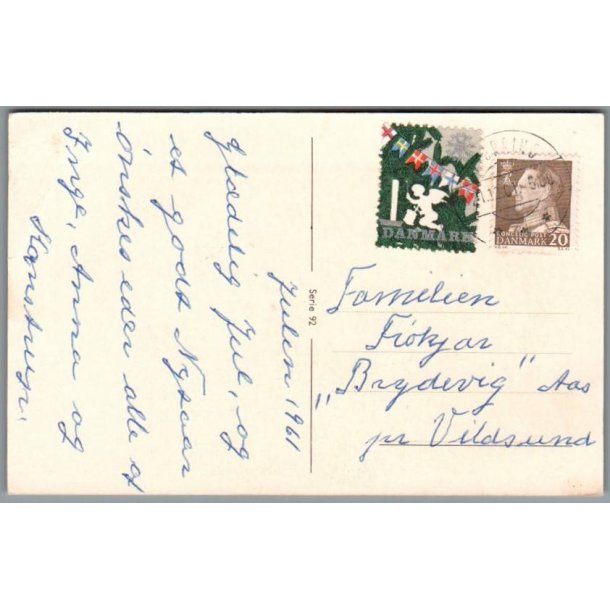 Julen 1961
Glædelig Jul, og
et godt Nytaar
ønskes eder alle af
Inge, Anna og
Serie 92
DANMARK
KONGELIG POST
DANMARK 20
Familien
"Brydevig" Aas
pr Vildsund